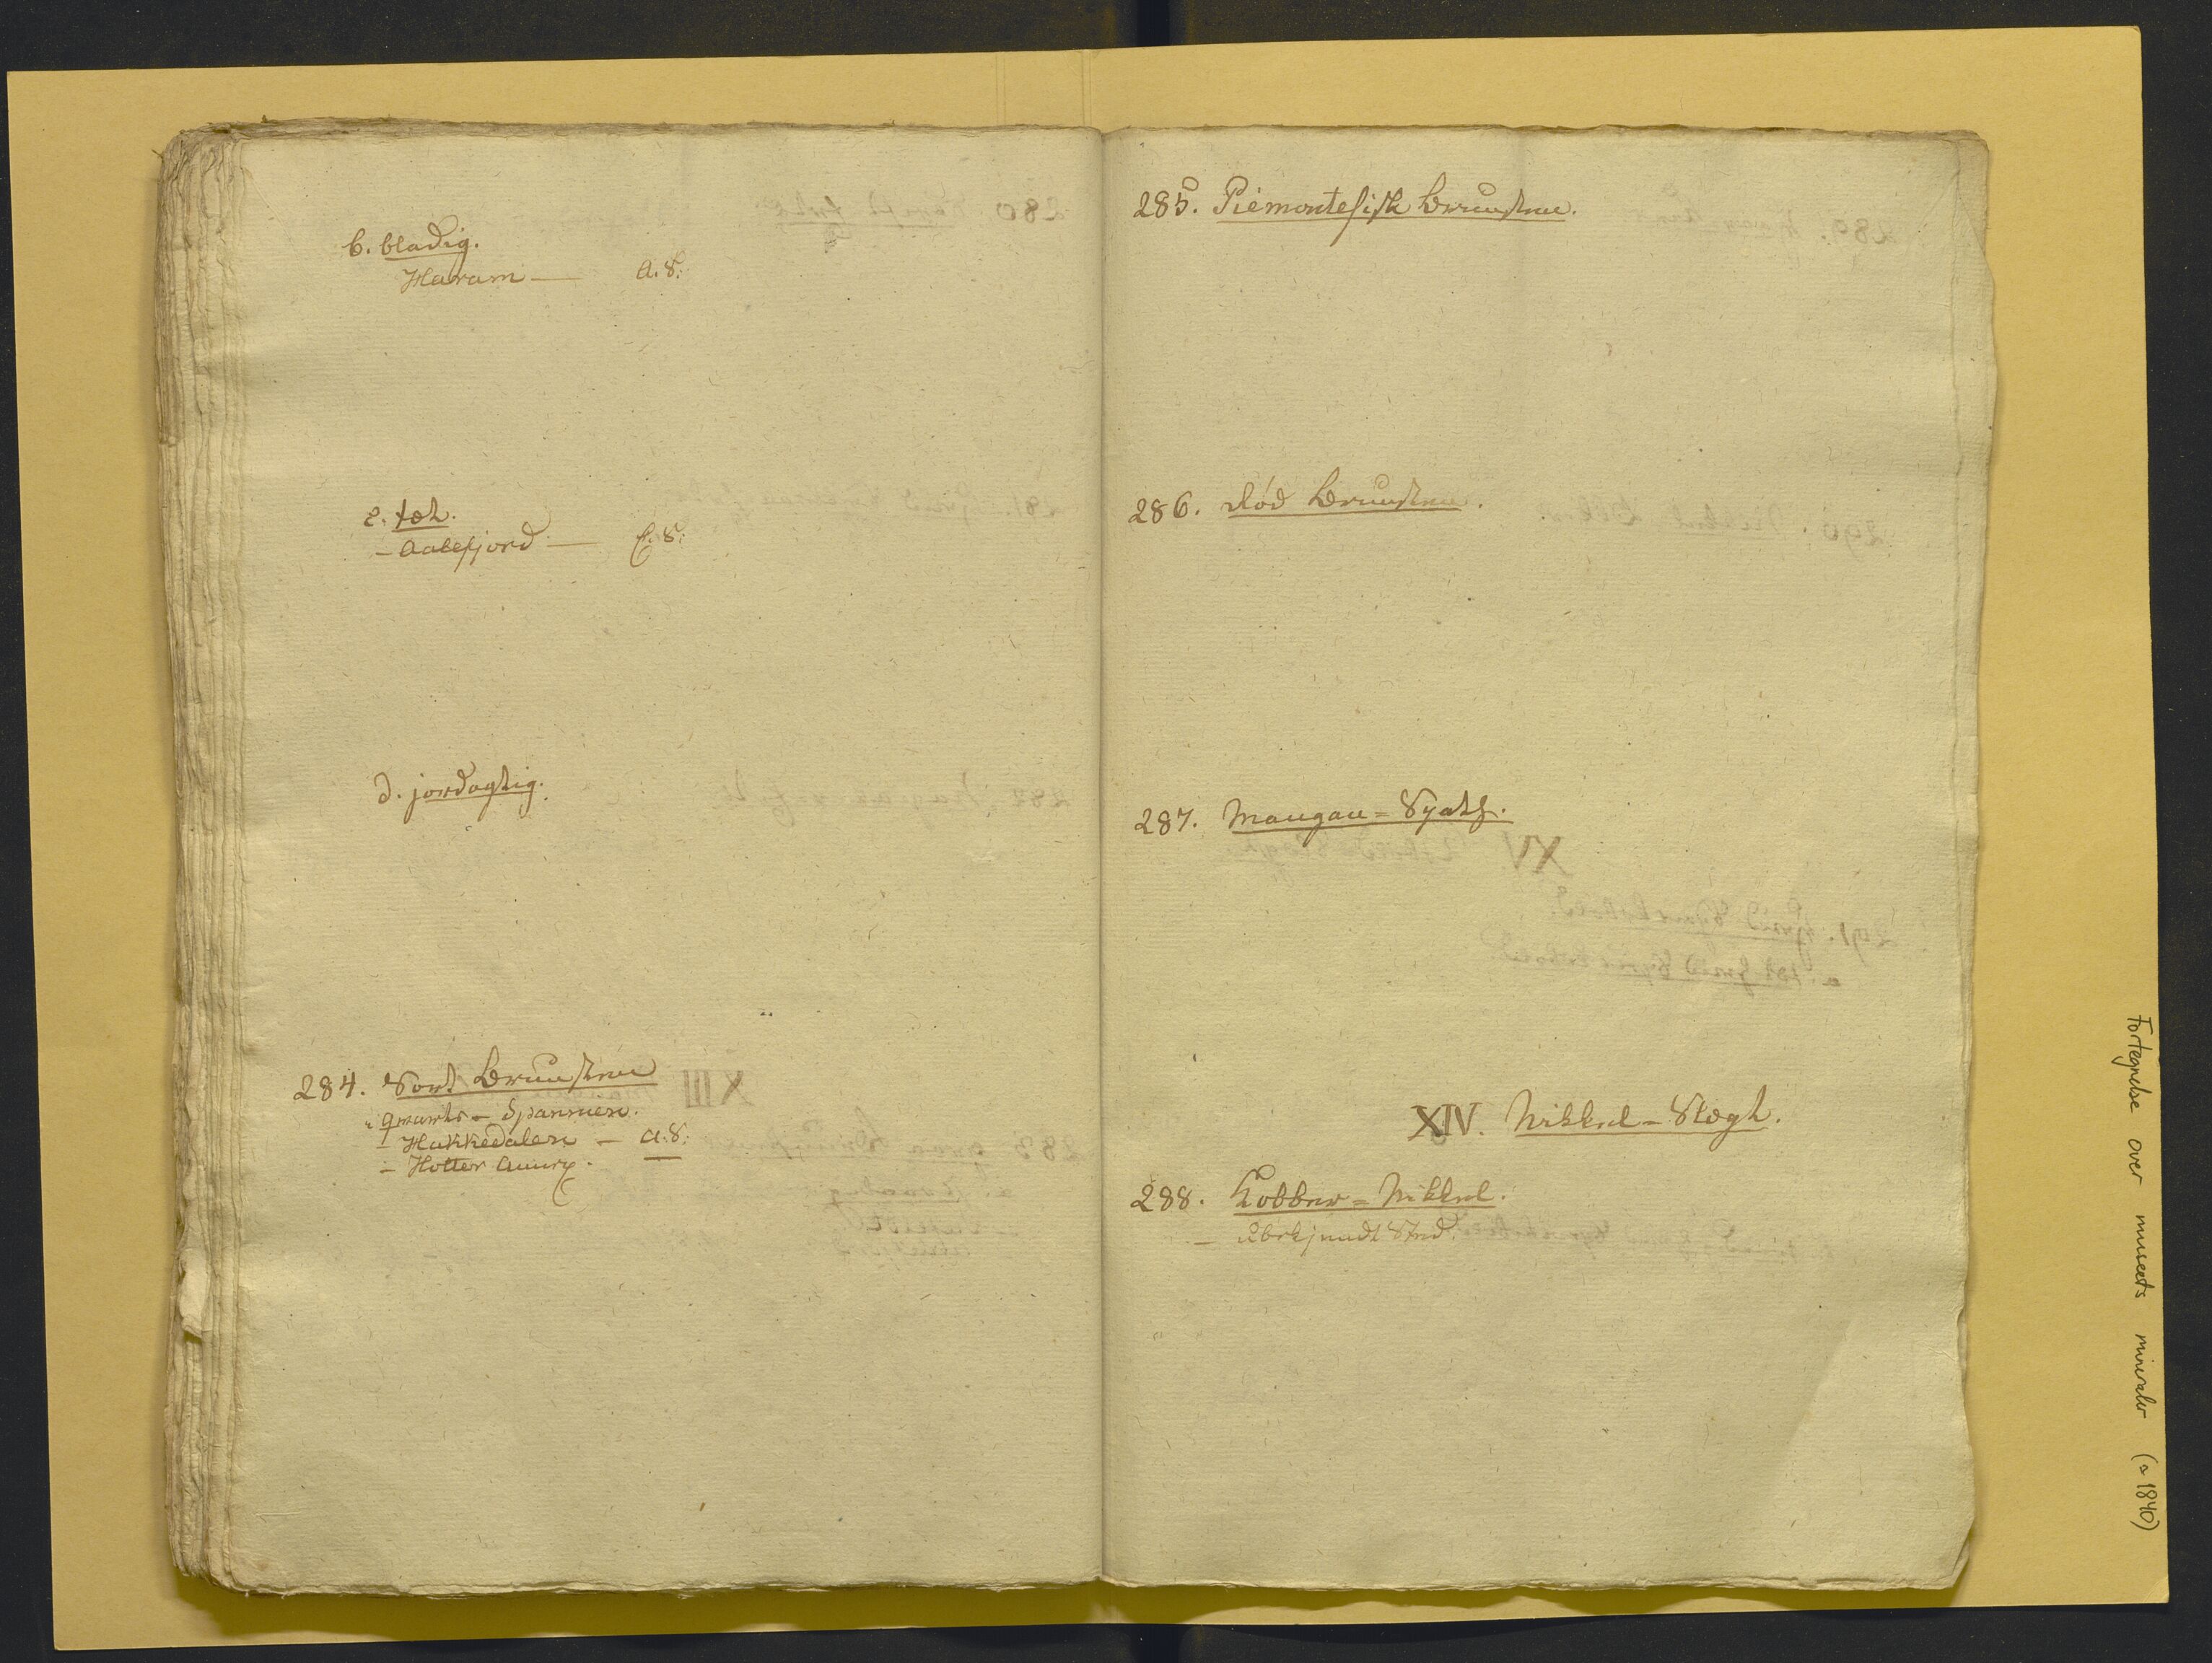 b. bladig.
Haram — A. S.
c. tæt.
– Aalesfjord — C. S.
d. jordagtig.
284. Sort Bruunsteen
" qvarts – Spanmen.
– Hakkedalen – A. S.
– Hotter
285. Piemontesisk Bruunsteen.
286. Rød Bruunsteen.
287. Mangan = Spath.
XIV. Nikkel = Slægt.
288. Kobber = Nikkel.
– Ubekjendt Sted.
Fortegnelse over museets mineraler (≈ 1840)